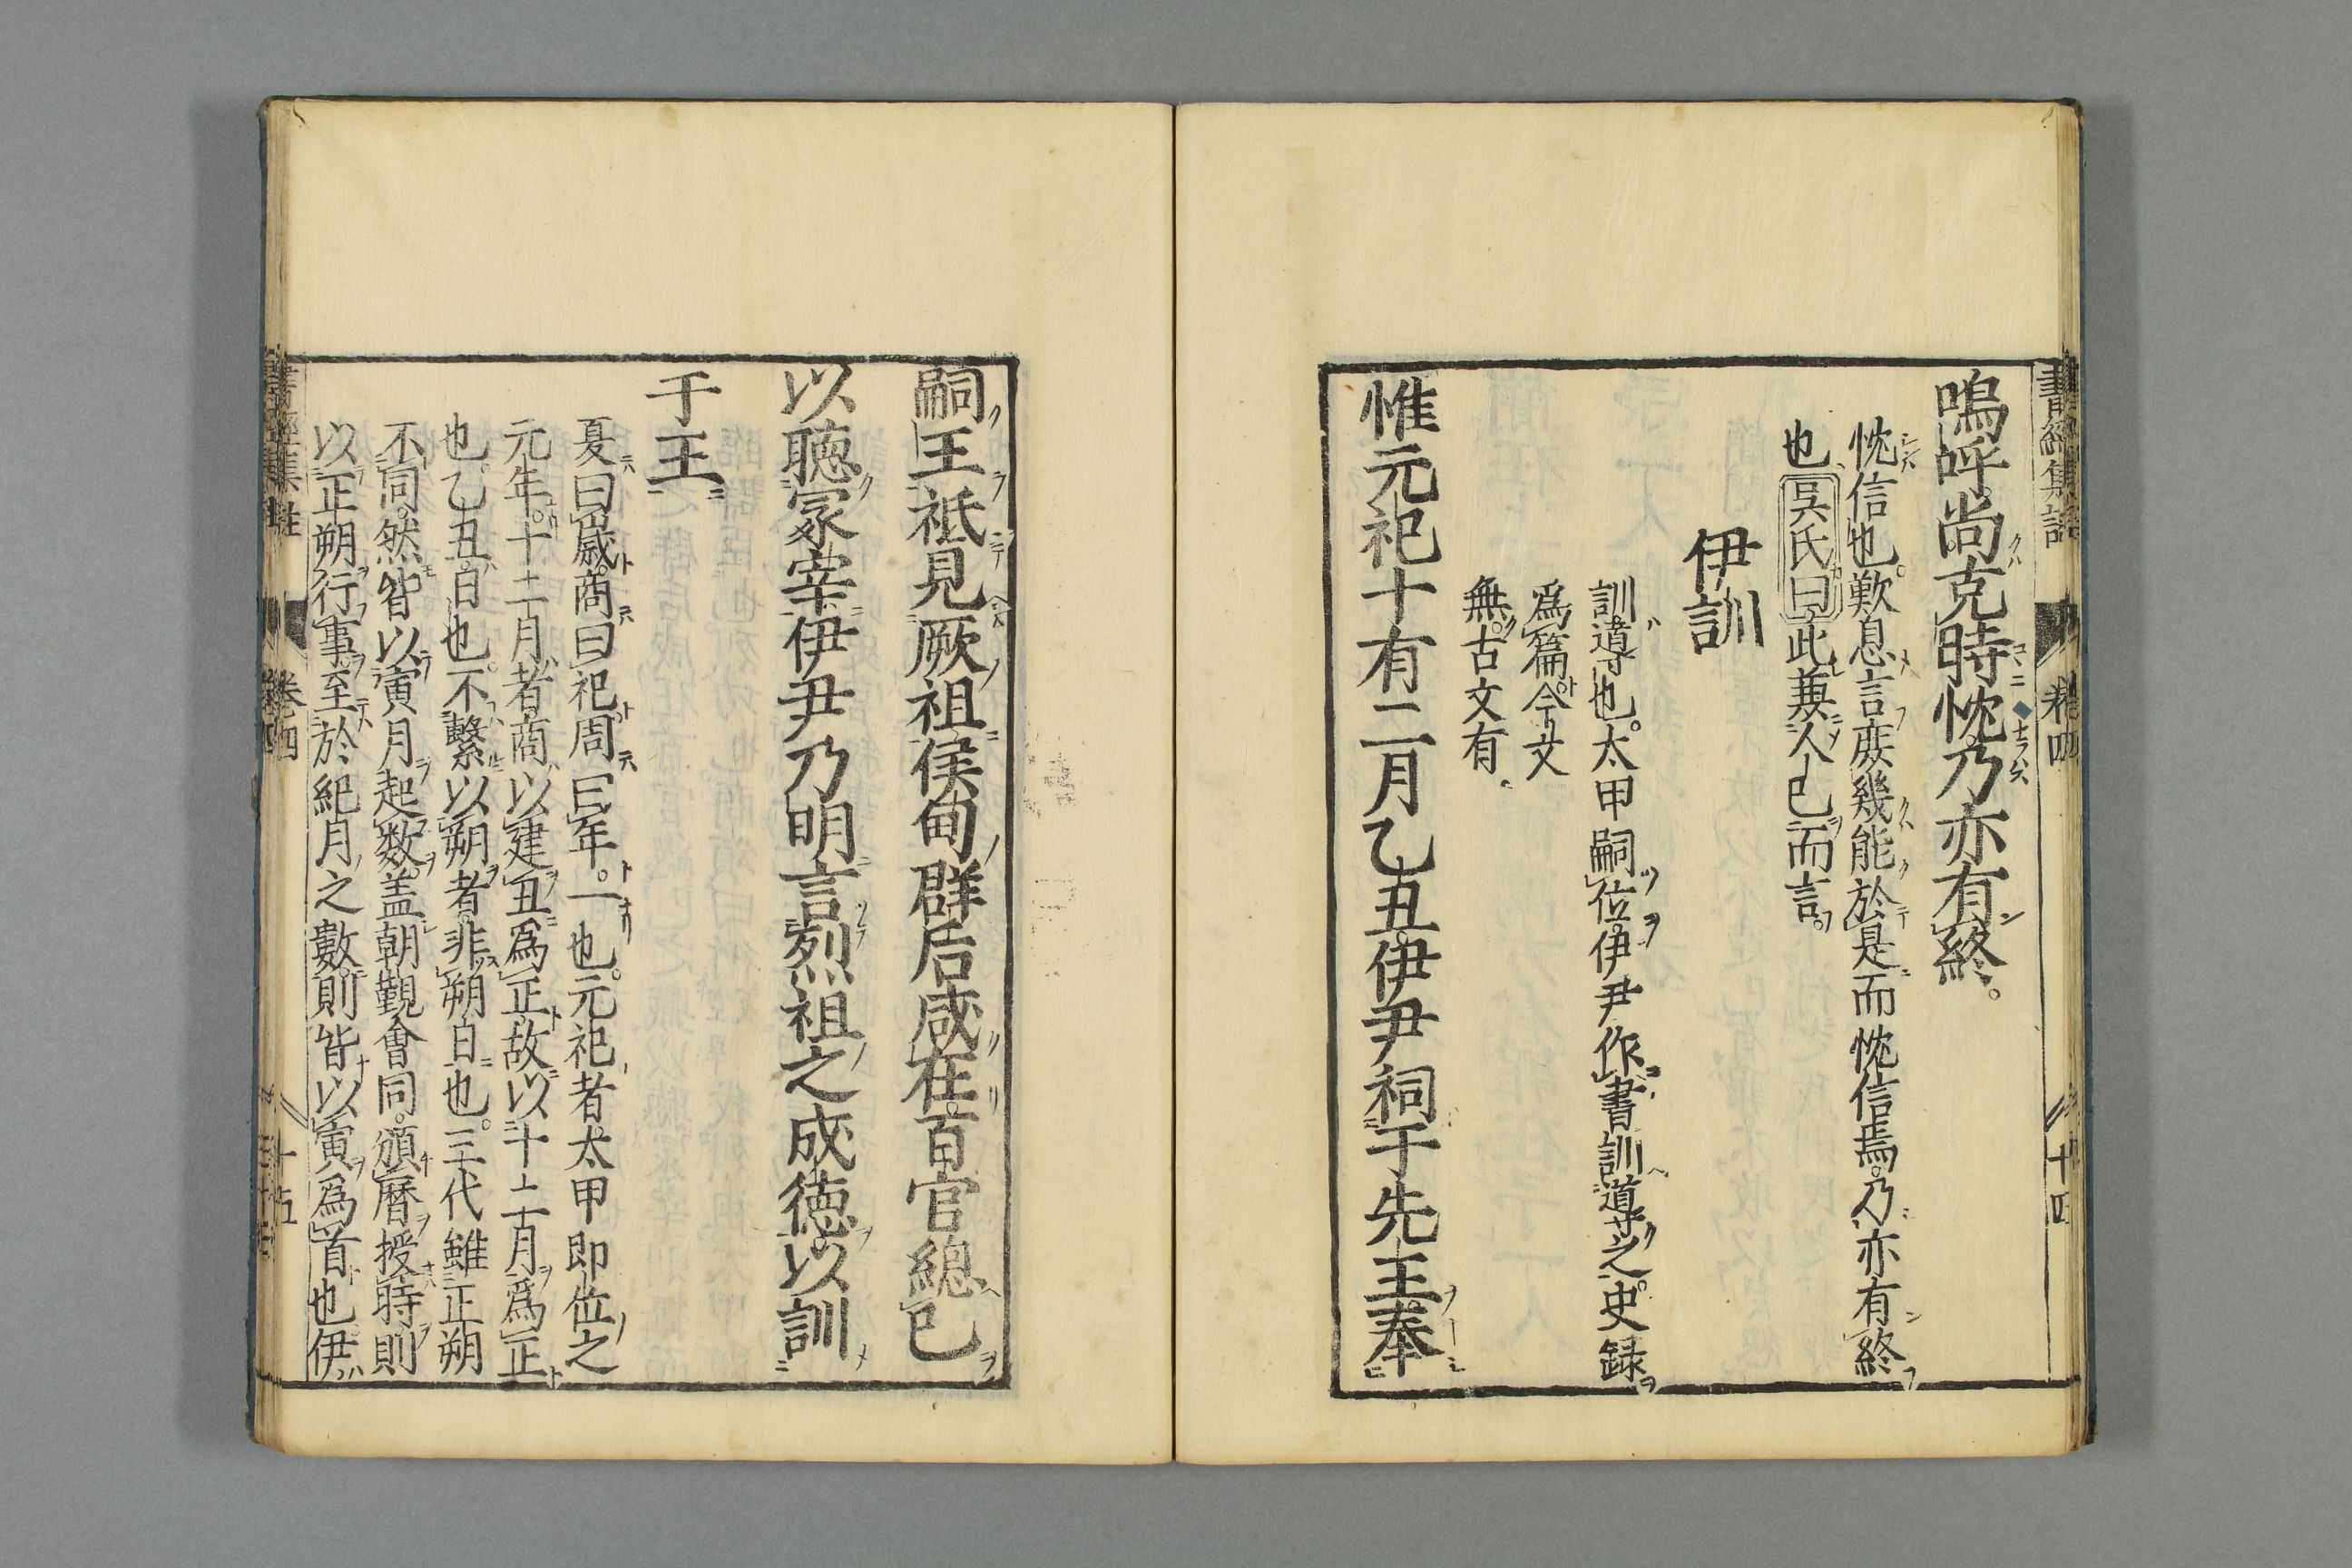 嗚呼。尚克時忱。乃亦有終。
忱信也。歎息言庶幾能於是而忱信焉。乃亦有終
也。吳氏曰。此兼人己而言。
伊訓
訓導也。太甲嗣位。伊尹作書訓導之。史録
爲篇。今文
無。古文有。
惟元祀十有二月乙丑。伊尹祠于先王。奉
嗣王祗見厥祖。侯甸群后咸在。百官總己
以聽冢宰。伊尹乃明言烈祖之成德。以訓
于王
夏曰歲。商曰祀。周曰年。一也。元祀者。太甲即位之
元年。十二月者。商以建丑爲正。故以十二月爲正
也。乙丑。日也。不繫以朔者。非朔日也。三代雖正朔
不同。然皆以寅月起数。盖朝覲會同。頒曆授時。則
以正朔行事。至於紀月之數。則皆以寅爲首也。伊